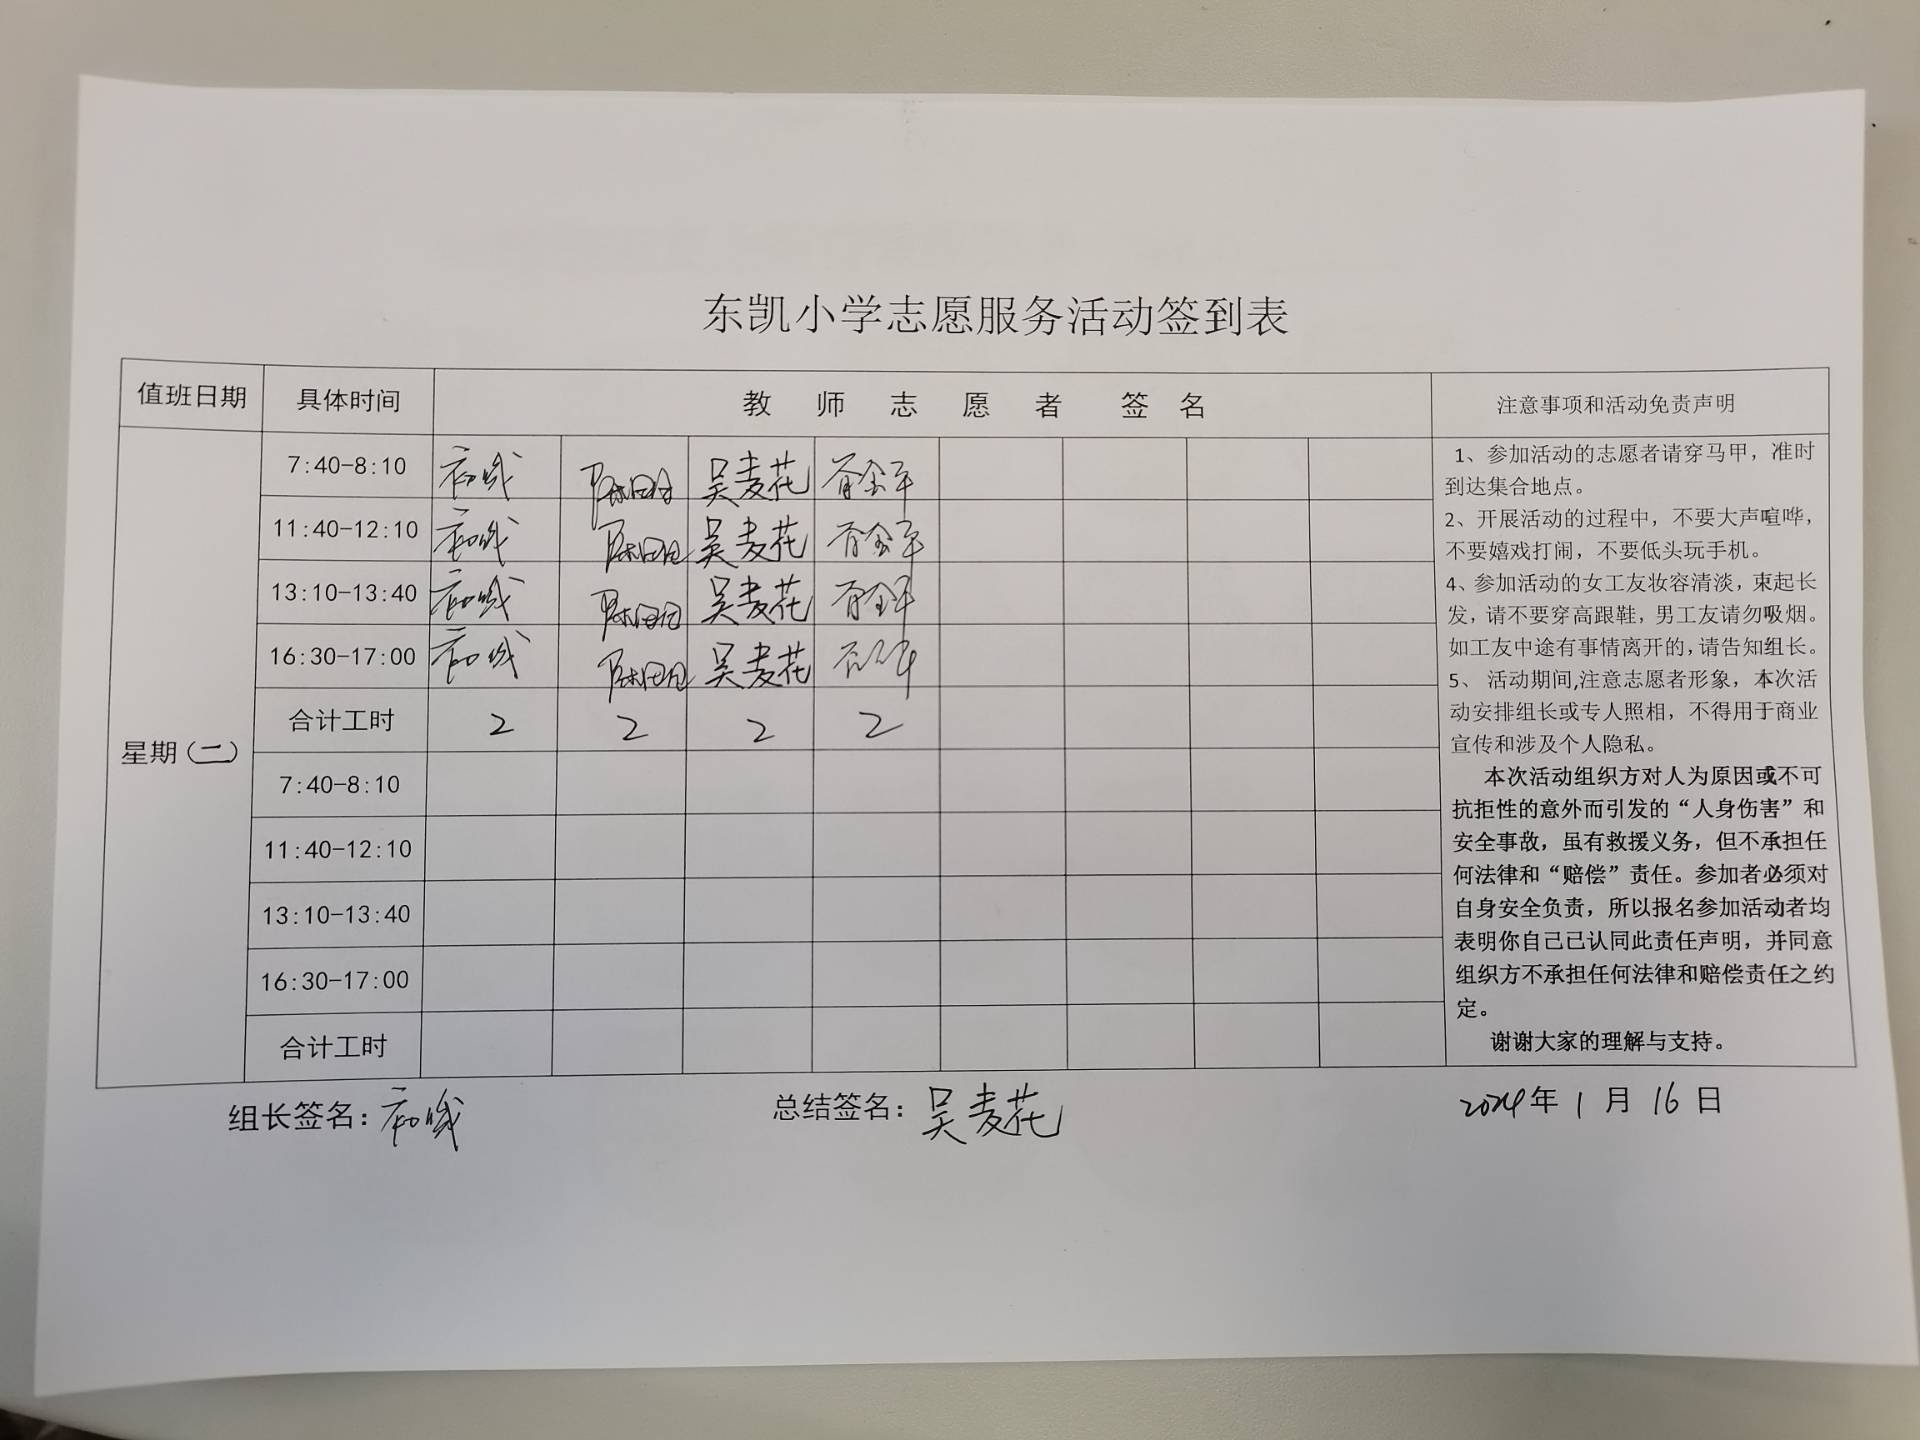 东凯小学志愿服务活动签到表
值班日期 具体时间 教师志愿者签名 注意事项和活动免责声明
星期(二)
7:40-8:10 吴麦花
11:40-12:10 吴麦花
13:10-13:40 吴麦花
16:30-17:00 吴麦花
合计工时 2 2 2 2
7:40-8:10
11:40-12:10
13:10-13:40
16:30-17:00
合计工时
1、参加活动的志愿者请穿马甲，准时
到达集合地点。
2、开展活动的过程中，不要大声喧哗，
不要嬉戏打闹，不要低头玩手机。
4、参加活动的女工友妆容清淡，束起长
发，请不要穿高跟鞋，男工友请勿吸烟。
如工友中途有事情离开的,请告知组长。
5、 活动期间,注意志愿者形象，本次活
动安排组长或专人照相，不得用于商业
宣传和涉及个人隐私。
本次活动组织方对人为原因或不可
抗拒性的意外而引发的“人身伤害”和
安全事故，虽有救援义务，但不承担任
何法律和“赔偿”责任。参加者必须对
自身安全负责，所以报名参加活动者均
表明你自己已认同此责任声明，并同意
组织方不承担任何法律和赔偿责任之约
定。
谢谢大家的理解与支持。
组长签名： 总结签名：吴麦花 2024年1月16日